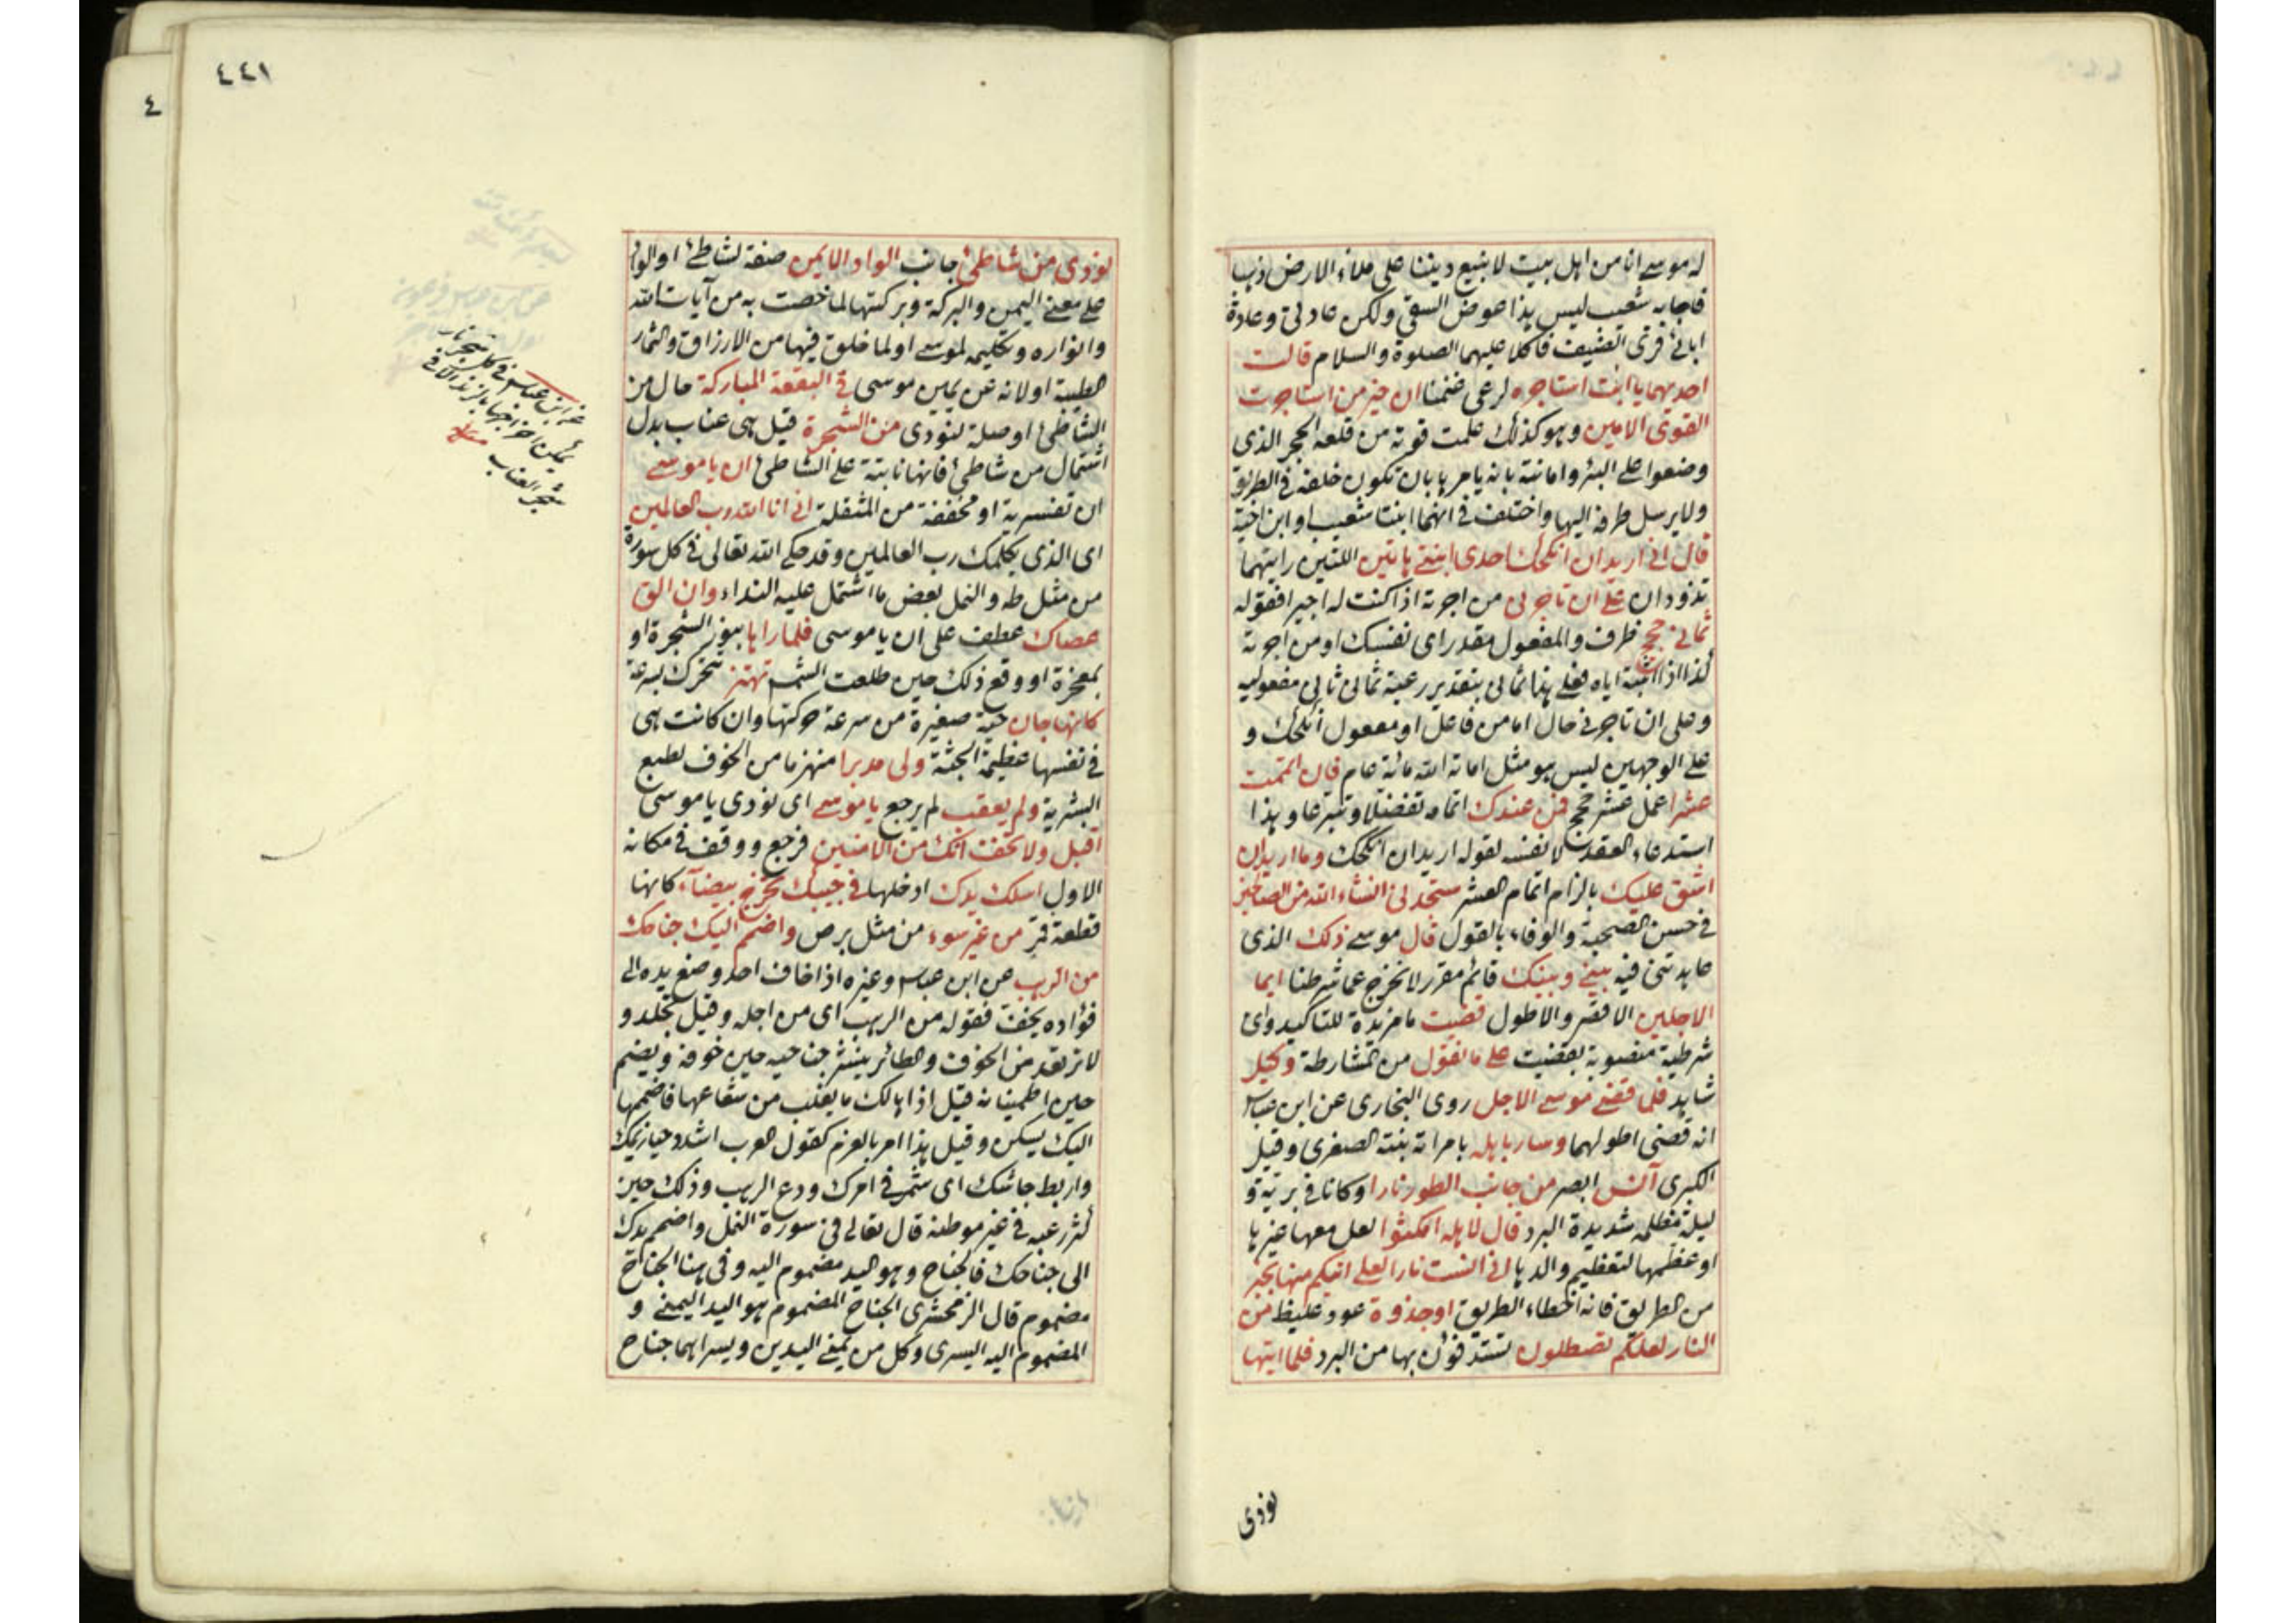 له موسى انا من اهل بيت لا نبيع ديننا على ملاء الارض ذهبا
فاجابه شعيب ليس هذا عوض السقي ولكن عادتي وعادة
ابائي قرى الضيف فاكلا عليهما الصلوة والسلام قالت
احديهما يا ابت استاجره لرعي غنمنا ان خير من استاجرت
القوى الامين وهو كذلك علمت قوته من قلعه الحجر الذي
وضعوا على البئر وامانته بانه يامرها بان تكون خلفه في الطريق
ولا يرسل طرفه اليها واختلف في انهما ابنتا شعيب او ابن اخيه
قال اني اريد ان انكحك احدى ابنتي هاتين اللتين رايتهما
تذودان على ان تاجرني من اجرته اذا كنت له اجيرا فقوله
ثماني حجج ظرف والمفعول مقدر اى نفسك او من اجرته
كذا اذا اثبته اياه فعلى هذا ثماني بتقدير رعية ثماني ثاني مفعوليه
وعلى ان تاجرني حال اما من فاعل او مفعول انكحك و
على الوجهين ليس هو مثل اماته الله مائة عام فان اتممت
عشرا عمل عشر حجج فمن عندك اتمامه تفضلا وتبرعا وهذا
استدعاء العقد لا نفسه لقوله اريد ان انكحك وما اريد ان
اشق عليك بالزام اتمام العشر ستجدني انشاء الله من الصالحين
في حسن الصحبة والوفاء بالقول قال موسى ذلك الذي
عاهدتني فيه بيني وبينك قائم مقرر لا نخرج عما شرطنا ايما
الاجلين الاقصر والاطول قضيت ما مزيدة للتاكيد واى
شرطية منصوبة بقضيت على ما نقول من المشارطة وكيل
شاهد فلما قضى موسى الاجل روى البخارى عن ابن عباس
انه قضى اطولهما وسار باهله بامراته بنته الصغرى وقيل
الكبرى آنس ابصر من جانب الطور نارا وكانا في برية و
ليلة مظلمة شديدة البرد قال لاهله امكثوا لعل معها غيرها
او عظمها لتعظيم والدها اني آنست نارا لعلي اتيكم منها بخبر
من الطريق فانه اخطاء الطريق او جذوة عود غليظ من
النار لعلكم تصطلون تستدفؤن بها من البرد فلما اتيها
نودى
٤٤١
٤
نودى من شاطئ جانب الواد الايمن صفة لشاطئ او الواد
على معنى اليمن والبركة وبركتها لما خصت به من آيات الله
وانواره وتكليمه لموسى او لما خلق فيها من الارزاق والثمار
الطيبة او لانه عن يمين موسى في البقعة المباركة حال من
الشاطئ او صلة لنودى من الشجرة قيل هى عناب بدل
اشتمال من شاطئ فانها نابتة على الشاطئ ان يا موسى
ان تفسيرية او مخففة من المثقلة اني انا الله رب العالمين
اى الذي يكلمك رب العالمين وقد حكى الله تعالى في كل سورة
من مثل طه والنمل بعض ما اشتمل عليه النداء وان الق
عصاك عطف على ان يا موسى فلما راها بنور الشجرة او
بمعجزة او وقع ذلك حين طلعت الشمس تهتز تتحرك بسرعة
كانها جان حية صغيرة من سرعة حركتها وان كانت هى
في نفسها عظيمة الجثة ولى مدبرا منهزما من الخوف لطبع
البشرية ولم يعقب لم يرجع يا موسى اى نودى يا موسى
اقبل ولا تخف انك من الآمنين فرجع ووقف في مكانه
الاول اسلك يدك ادخلها في جيبك تخرج بيضآء كانها
قطعة قمر من غير سوء من مثل برص واضمم اليك جناحك
من الرهب عن ابن عباس وغيره اذا خاف احد وضع يده الى
فؤاده يخف فقوله من الرهب اى من اجله وقيل تجلد و
لا ترتعد من الخوف والطائر ينشر جناحيه حين خوفه ويضم
حين اطمينانه قيل اذا هالك ما يغلب من شعاعها فاضممها
اليك يسكن وقيل هذا امر بالعزم كقول العرب اشدد حيازيمك
واربط جاشك اى شمر في امرك ودع الرهب وذلك حين
كثر رعبه في غير موطنه قال تعالى في سورة النمل واضمم يدك
الى جناحك فالجناح وهو اليد مضموم اليه وفي هنا الجناح
مضموم قال الزمخشرى الجناح المضموم هو اليد اليمنى و
المضموم اليه اليسرى وكل من يمنى اليدين ويسراهما جناح
عن ابن عباس في كل شجر نار
يمكن اخراجها بالزند الا في
شجر العناب منه